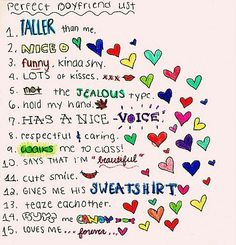 perfect boyfriend list
1. TALLER than me.
2. NICE
3. funny, kinda shy.
4. LOTS of kisses. xxx
5. not the JEALOUS type.
6. hold my hand.
7. HAS A NICE "VOICE"
8. respectful & caring.
9. walks me to class!
10. SAYS THAT I'M "beautiful"
11. cute smile.
12. GIVES ME HIS SWEATSHIRT
13. teaze eachother.
14. BUYS me CANDY
15. LOVES ME... forever...